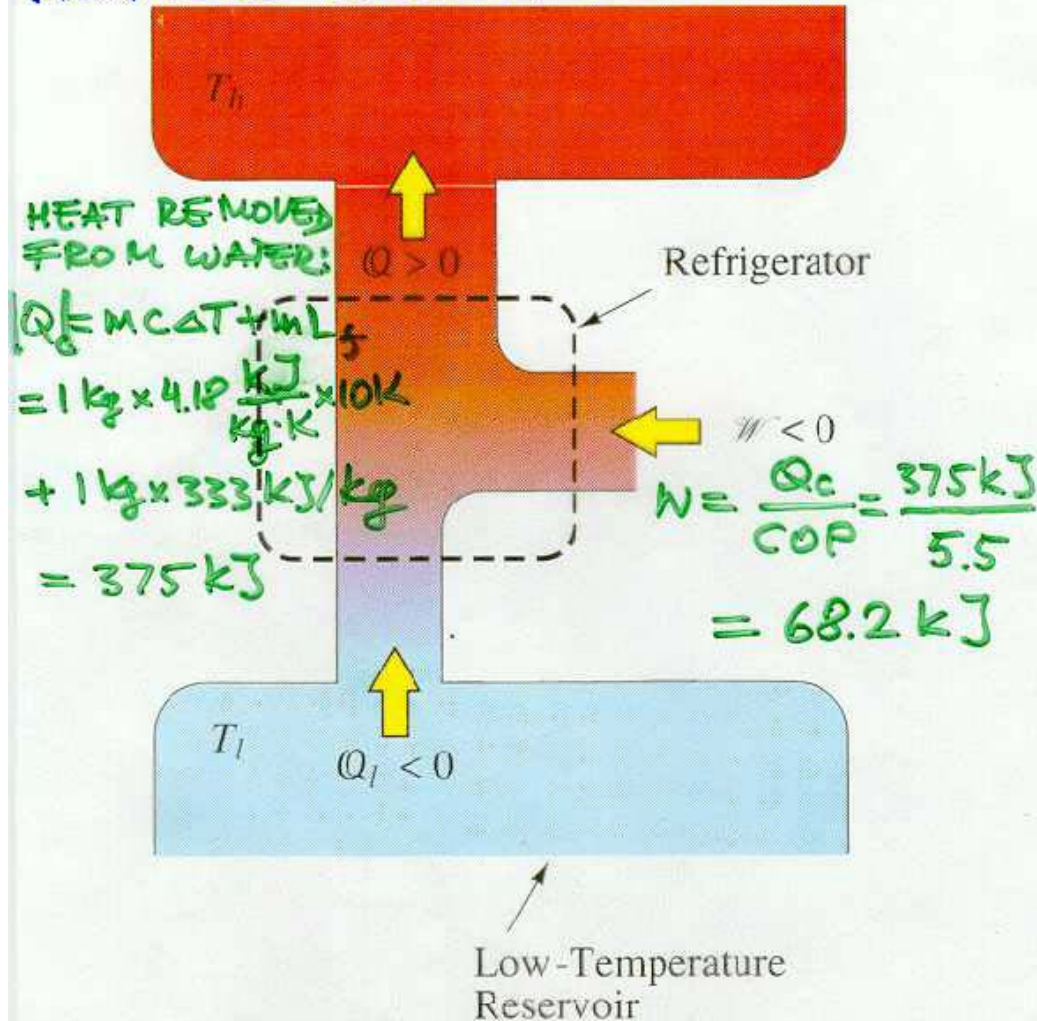 T_h
HEAT REMOVED
FROM WATER:
Q > 0
Refrigerator
|Q_c|= m c ΔT + m L_f
= 1 kg × 4.18 kJ/kg·K × 10K
W < 0
+ 1 kg × 333 kJ/kg
W = Q_c/COP = 375 kJ/5.5
= 375 kJ
= 68.2 kJ
T_l
Q_l < 0
Low-Temperature
Reservoir